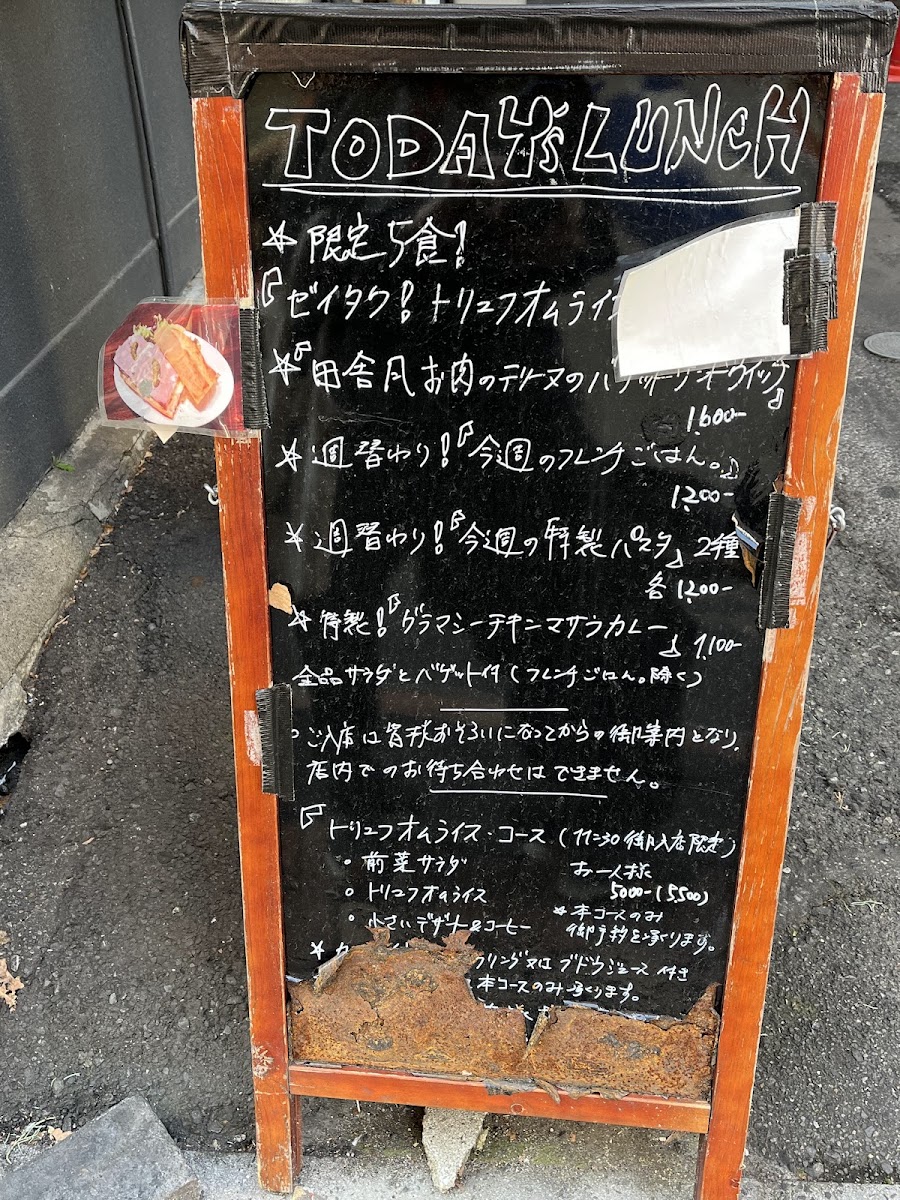 TODAY'S LUNCH
☆ 限定5食!
「ゼイタク! トリュフオムライス
☆「田舎風お肉のテリーヌのバゲットサンドウィッチ」
1,600-
☆ 週替わり!「今週のフレンチごはん。」
1,200-
☆ 週替わり!「今週の特製パスタ」2種
各 1,200-
☆ 特製!「グラマシーチキンマサラカレー」1,100-
全品サラダとバゲット付(フレンチごはん。除く)
○ ご入店は皆様おそろいになってからの御案内となり、
店内でのお待ち合わせはできません。
「トリュフオムライス・コース(11:30御入店限定)
○ 前菜サラダ お一人様
○ トリュフオムライス 5000-(5,500)
○ 小さいデザート&コーヒー ☆本コースのみ
御予約を承ります。
リング又はブドウジュース付き
本コースのみ承ります。